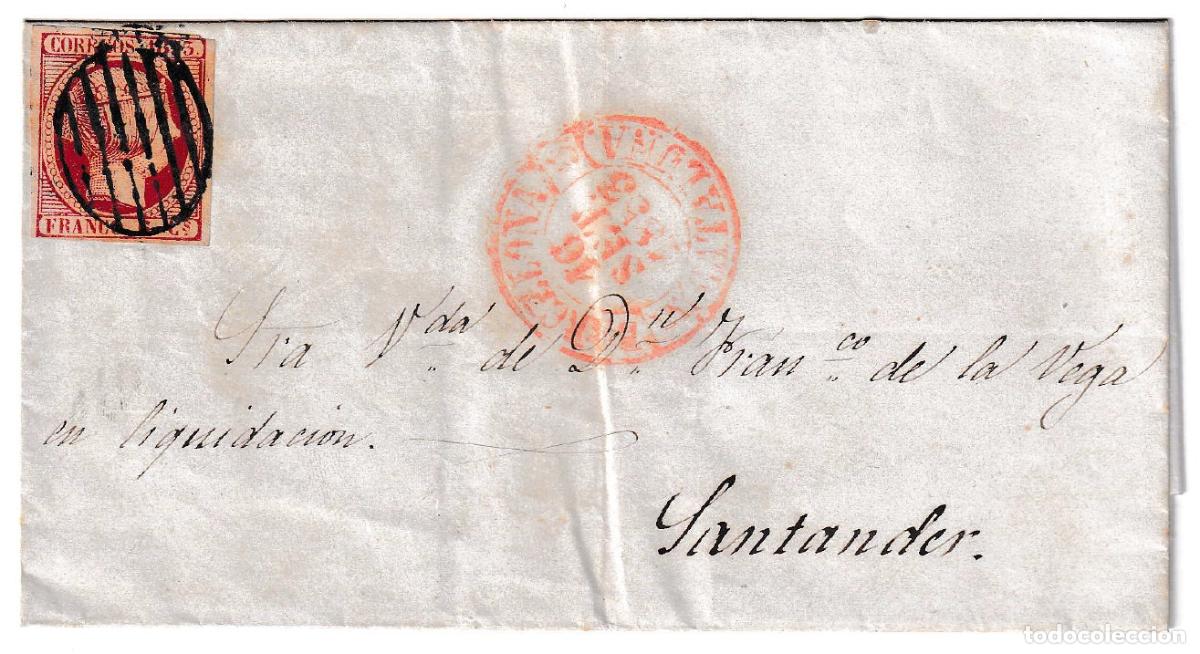 CORREOS 1853.
FRANCO 6 Cs
BARCELONA
CATALUÑA
Sra Vda. de Dn. Franco. de la Vega
en liquidación.
Santander.
todocoleccion